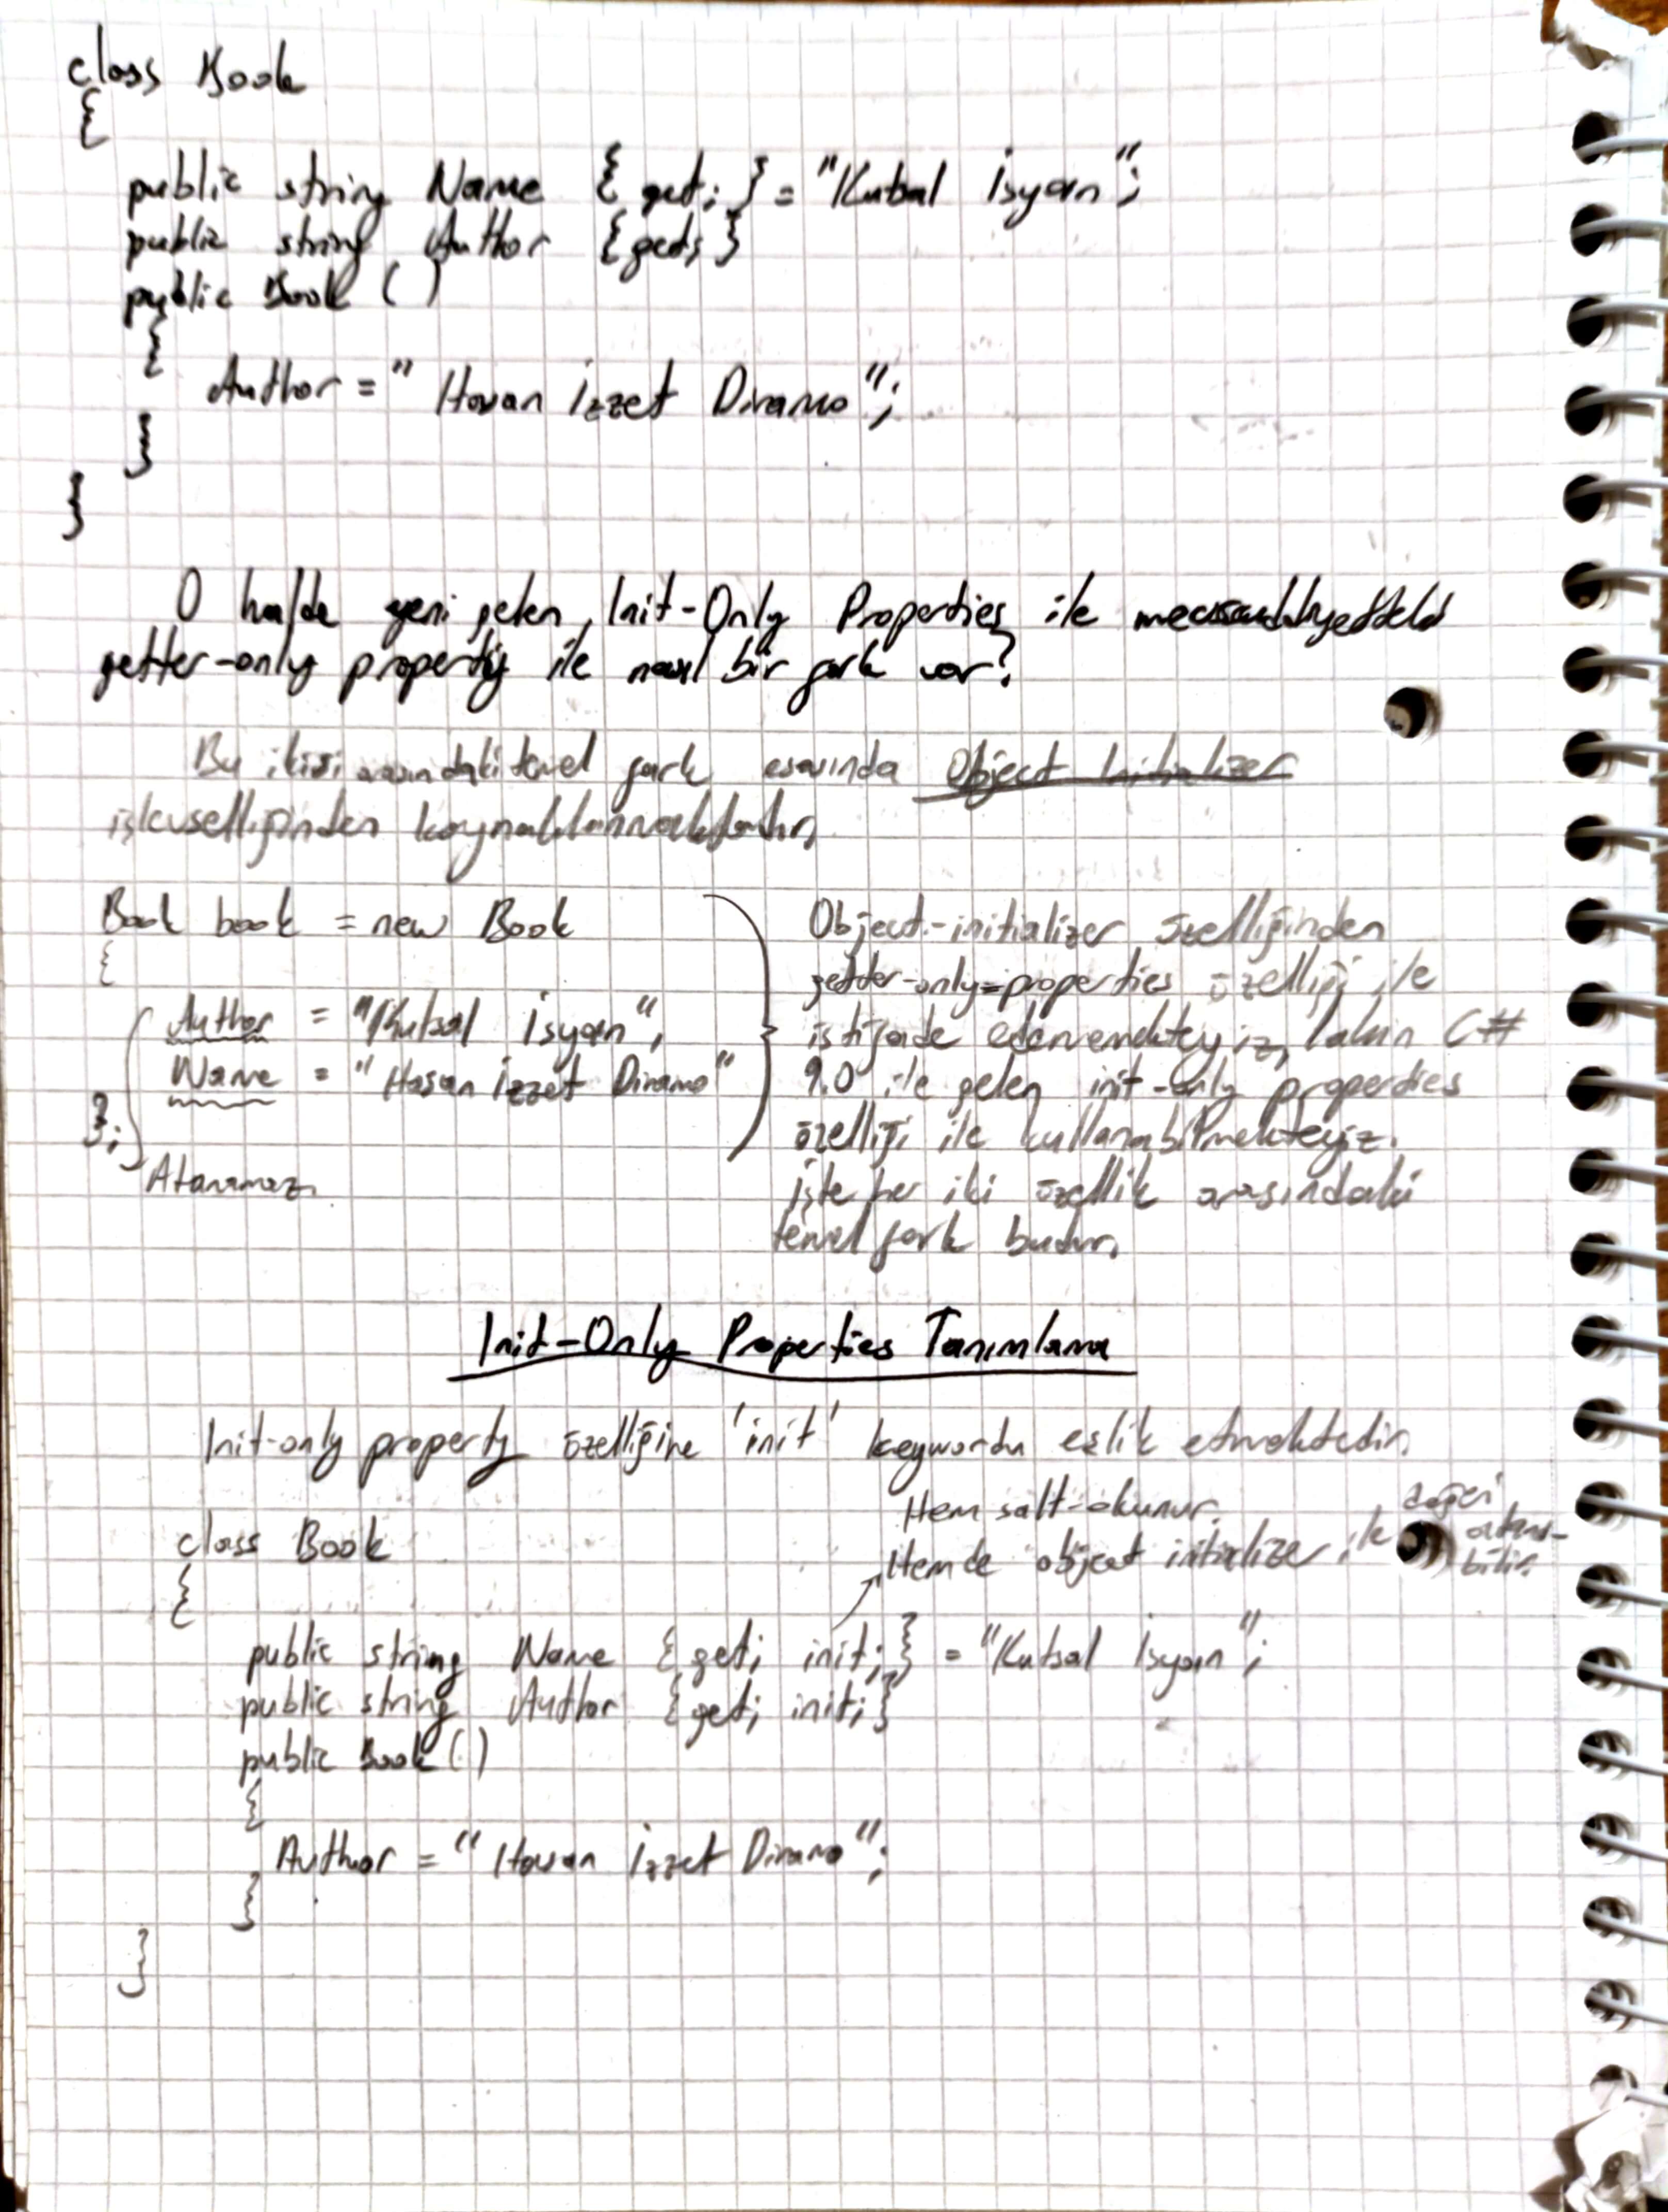 class Book
{
public string Name { get; } = "Kutsal İsyan";
public string Author { get; }
public Book ( )
{
Author = " Hasan İzzet Dinamo";
}
}
O halde yeni gelen Init-Only Properties ile
getter-only property ile nasıl bir fark var?
Bu ikisi arasındaki temel fark esasında Object Initializer
işlevselliğinden kaynaklanmaktadır.
Book book = new Book
{
Author = "Kutsal İsyan",
Name = "Hasan İzzet Dinamo"
};
Atanamaz.
Object-initializer özelliğinden
getter-only-properties özelliği ile
istifade edememekteyiz, lakin C#
9.0 ile gelen init-only properties
özelliği ile kullanabilmekteyiz.
işte her iki özellik arasındaki
temel fark budur.
Init-Only Properties Tanımlama
Init-only property özelliğine 'init' keywordu eşlik etmektedir.
Hem salt-okunur.
Hem de object initializer ile değer atana-
bilir.
class Book
{
public string Name { get; init; } = "Kutsal İsyan";
public string Author { get; init; }
public Book ( )
{
Author = " Hasan İzzet Dinamo";
}
}